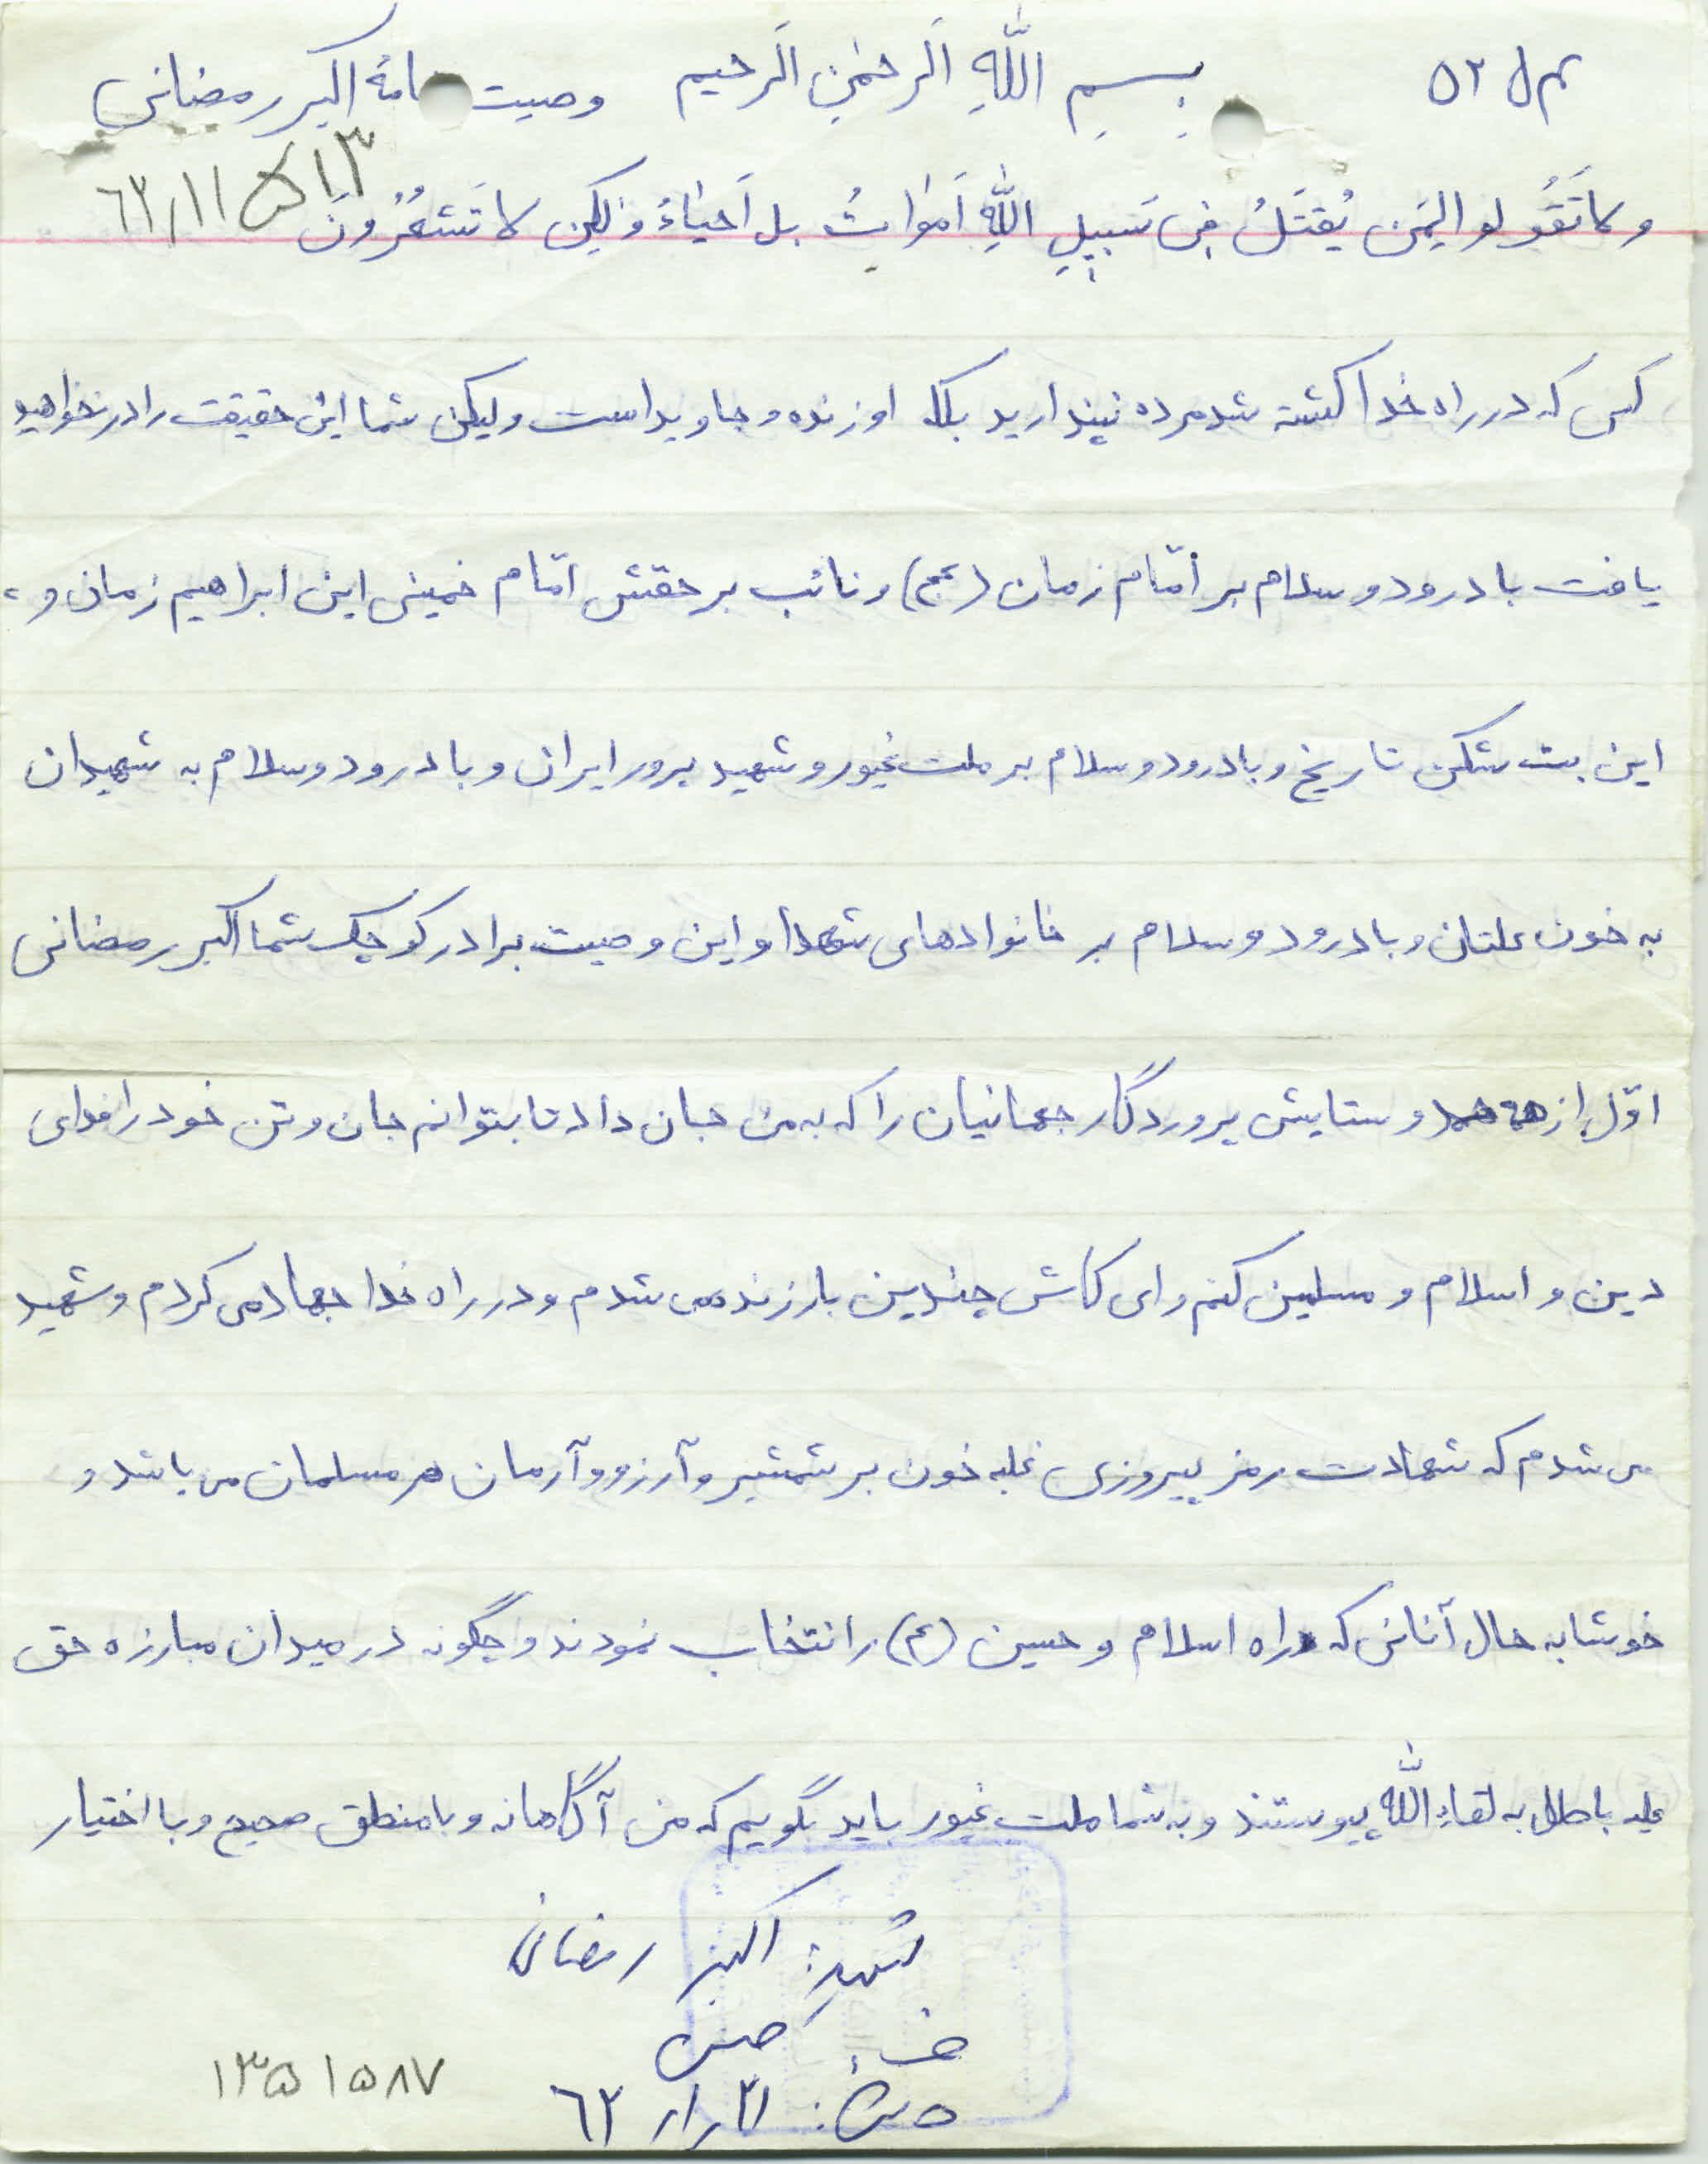 بِسمِ اللّهِ الَرحمٰنِ الَرحیم وصیت نامهٔ اکبر رمضانی
ولا تَقَولو الِمَن یُقتَلُ فِی سَبیلِ اللّهِ اَمواتُ بل اَحیاءُ وَلکِن لا تَشعُرُونَ
کسی که در راه خدا کشته شد مرده نپندارید بلکه او زنده و جاوید است ولیکن شما این حقیقت را در نخواهید
یافت با درود و سلام بر امّام زمان (عج) و نائب بر حقش امّام خمینی این ابراهیم زمان و
این بت شکن تاریخ و با درود و سلام بر ملت غیور و شهید پرور ایران و با درود و سلام به شهیدان
به خون غلتان و با درود و سلام بر خانوادهای شهدا و این وصیت برادر کوچک شما اکبر رمضانی
اوّل از همه حمد و ستایش پروردگار جهانیان را که به من جان داد تا بتوانم جان و تن خود را فدای
دین و اسلام و مسلمین کنم و ای کاش چندین بار زنده می شدم و در راه خدا جهاد می کردم و شهید
می شدم که شهادت رمز پیروزی غلبه خون بر شمشیر و آرزو و آرمان هر مسلمان می باشد و
خوشا به حال آنانی که راه اسلام و حسین (ع) را انتخاب نمودند و چگونه در میدان مبارزه حق
علیه باطل به لقاءِ اللّه پیوستند و به شما ملت غیور باید بگویم که من آگاهانه و با منطق صحیح و با اختیار
شهید: اکبر رمضانی
۱۳۵۱۵۸۷